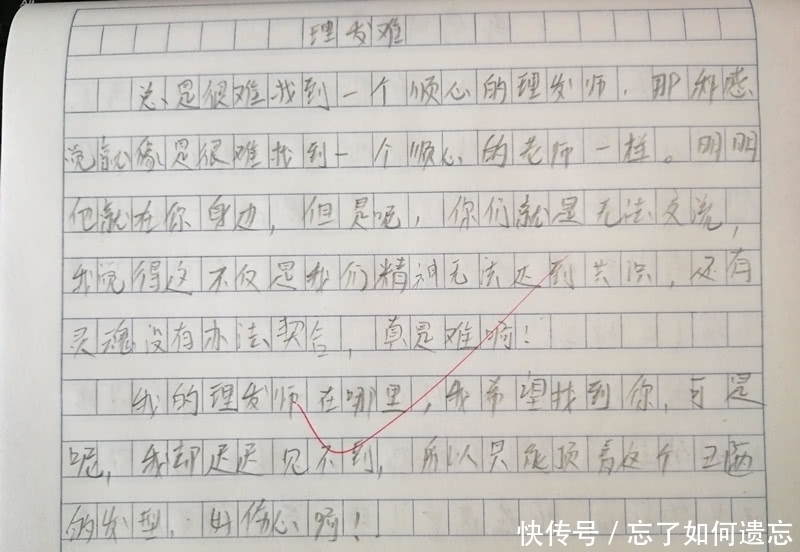 理发难
总是很难找到一个顺心的理发师，那种感
觉就像是很难找到一个顺心的老师一样。明明
他就在你身边，但是呢，你们就是无法交流，
我觉得这不仅是我们精神无法达到共识，还有
灵魂没有办法契合，真是难啊！
我的理发师在哪里，我希望找到你，可是
呢，我却迟迟见不到，所以只能顶着这个丑陋
的发型，好伤心啊！
快传号/忘了如何遗忘